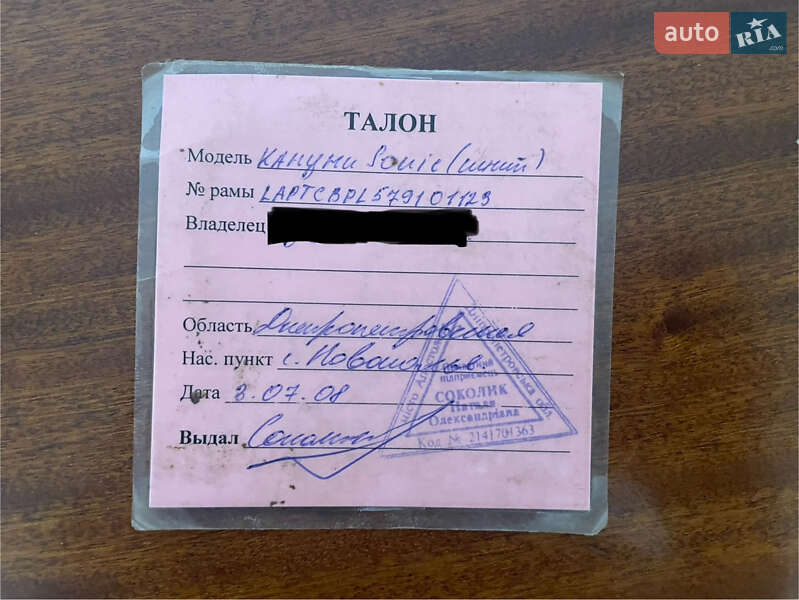 auto RIA .com
ТАЛОН
Модель КАНУНИ Sonic (синий)
№ рамы LAPTCBPL579101123
Владелец
Область Днепропетровская
Нас. пункт г.
Дата 3.07.08
Выдал
місто Апостолове Дніпропетровська обл.
підприємець
СОКОЛИК
Наталя
Олександрівна
Код № 2141701363